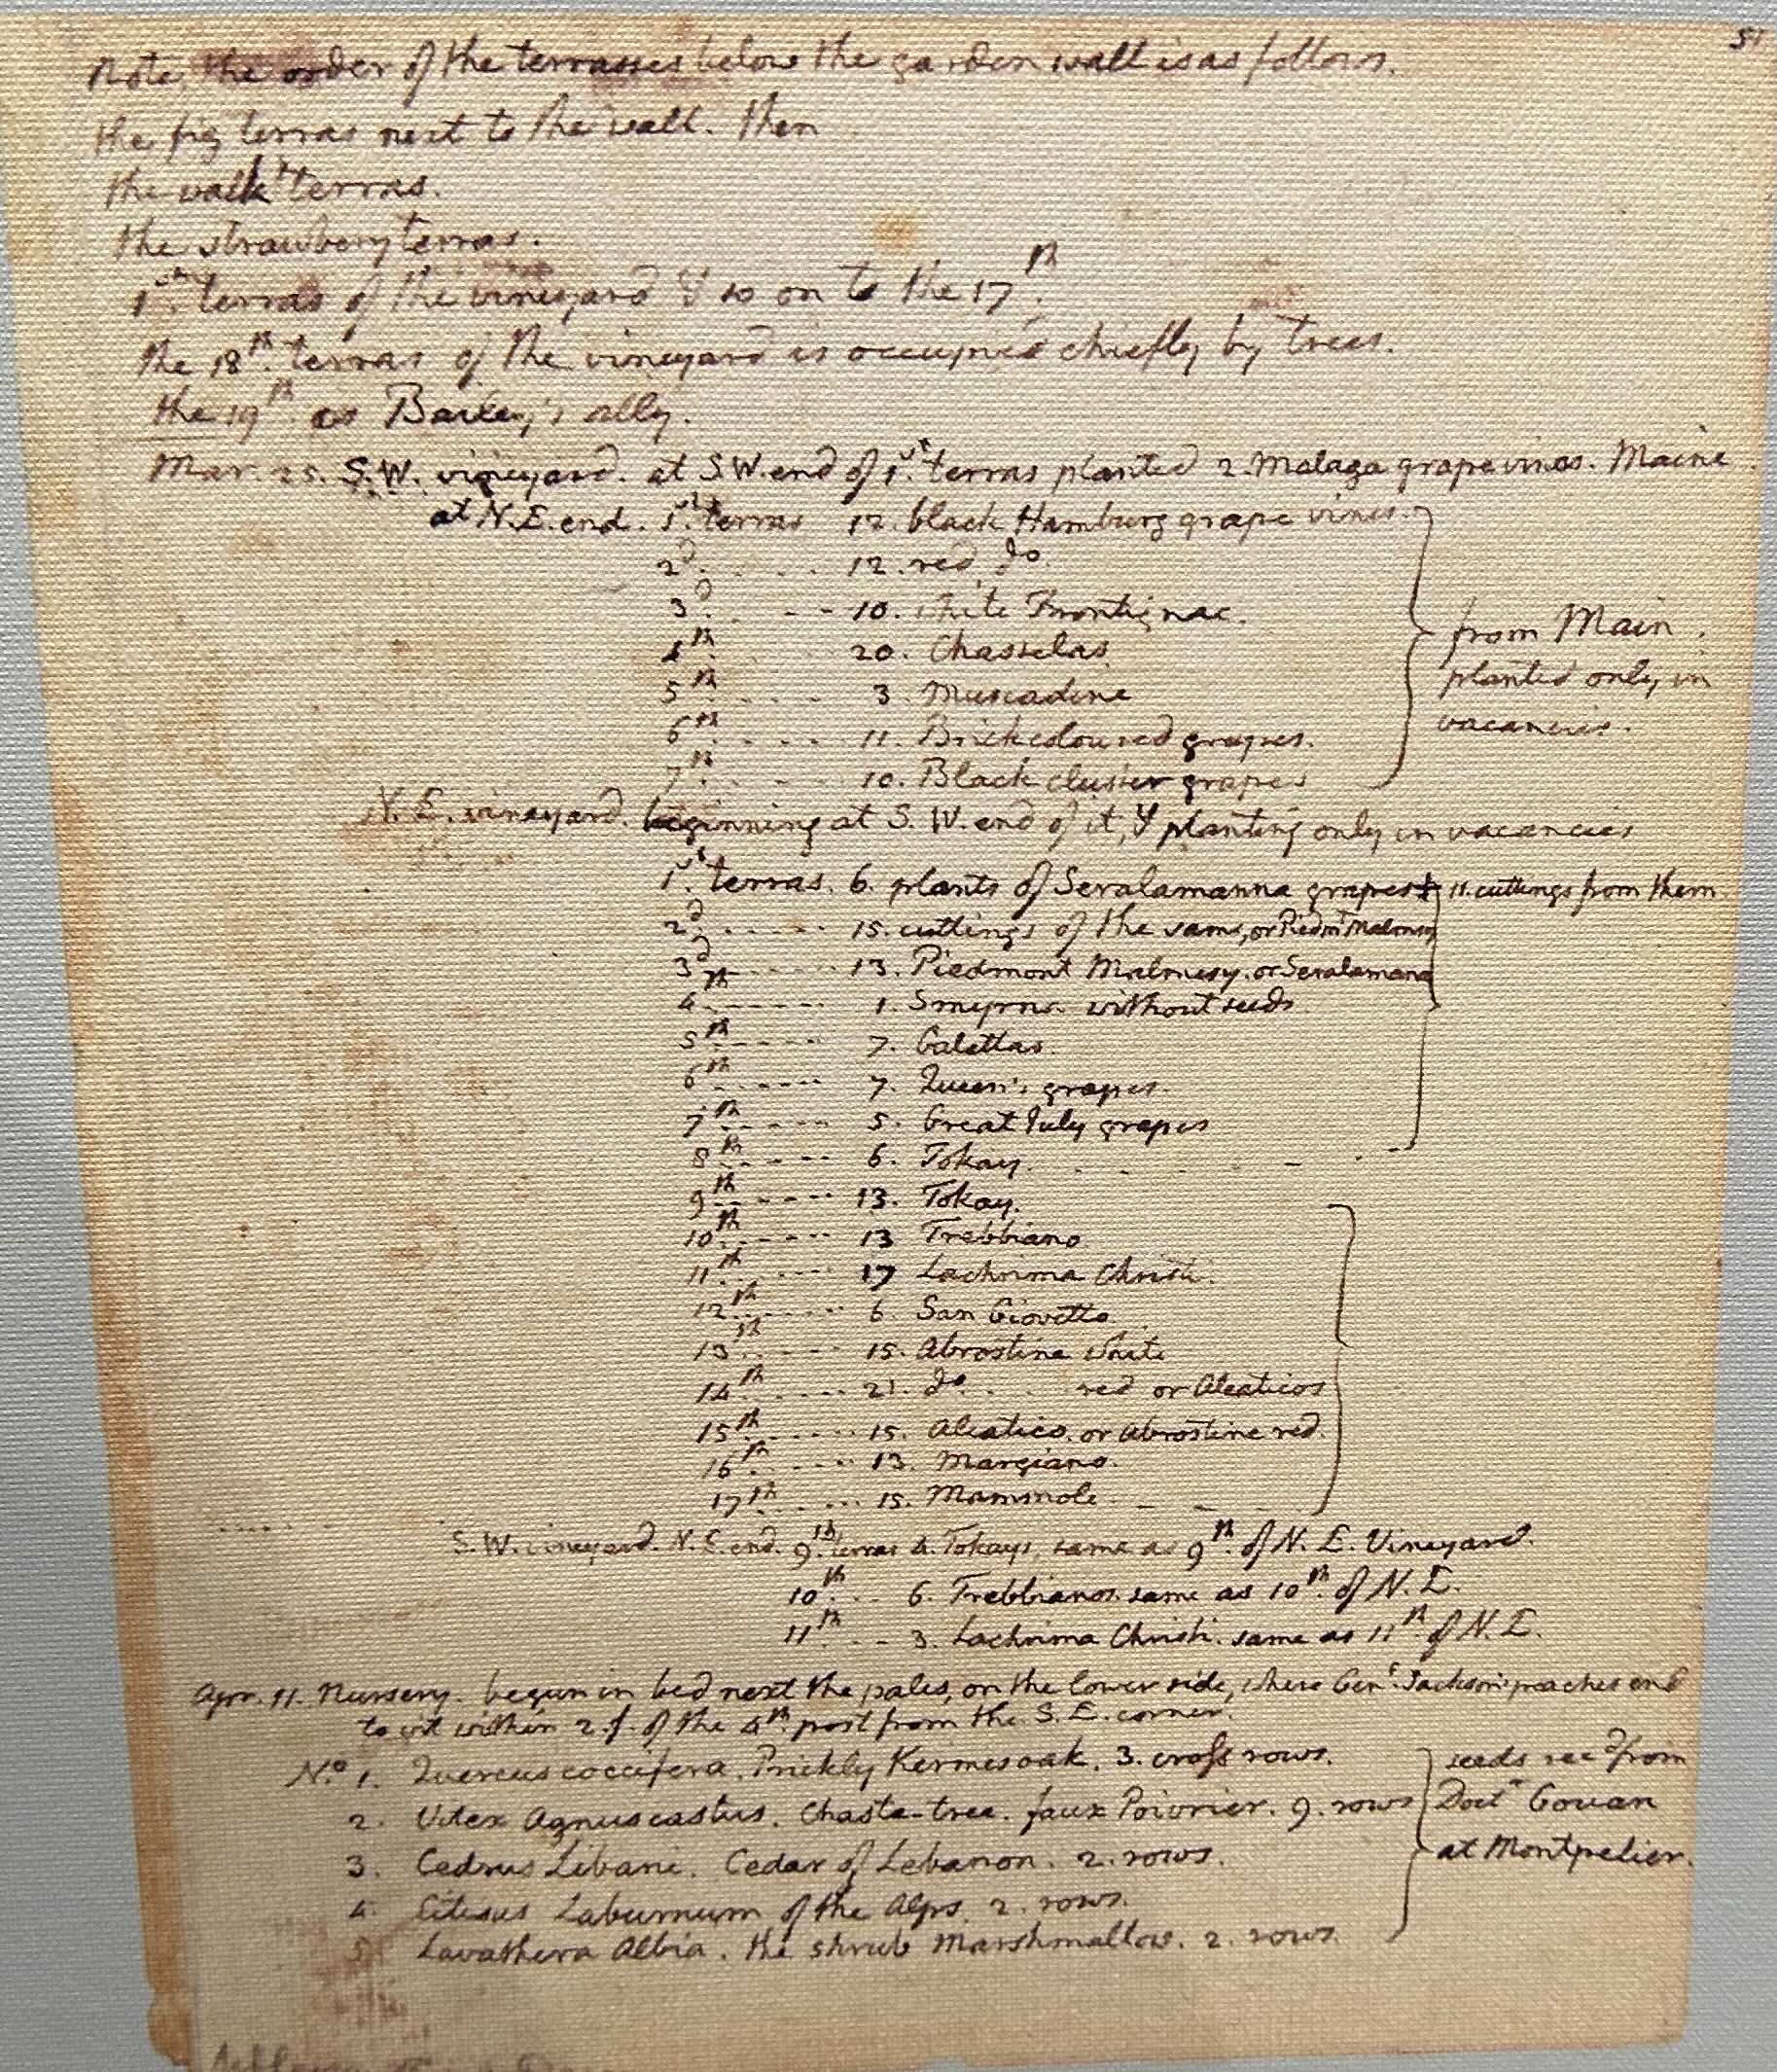 51
Note, the order of the terrasses below the garden wall is as follows.
the fig terras next to the wall. then
the walk terras.
the strawbery terras.
1st. terras of the vineyard & so on to the 17th.
the 18th. terras of the vineyard is occupied chiefly by trees.
the 19th. as Bailey's ally.
Mar. 25. S.W. vineyard. at S.W. end of 1st. terras planted 2. Malaga grape vines. Maine
at N.E. end. 1st. terras 12. black Hamburg grape vines.
2d. . . . 12. red do.
3d. . . - - 10. white Frontignac.
4th. . . 20. Chasselas
5th. . . . 3 Muscadine
6th. . . . 11. Brick coloured grapes.
7th. . . 10. Black cluster grapes
from Main.
planted only in
vacancies.
N.E. vineyard. beginning at S.W. end of it, & planting only in vacancies
1st. terras. 6. plants of Seralamanna grapes + 11. cuttings from them
2d. . . . . . 15. cuttings of the same, or Piedmt Malmsy
3d ----- 13. Piedmont Malmesy. or Seralamana
4th ------ 1. Smyrna without seeds
5th ----- 7. Galettas.
6th ----- 7. Queen's grapes.
7th ----- 5. Great July grapes
8th ----- 6. Tokay. . - - . -
9th ----- 13. Tokay.
10th. ----- 13 Trebbiano
11th. ---- 17 Lachrima Christi.
12th. ---- 6. San Giovetto
13th. ---- 15. Abrostine white
14th. ---- 21. do. . . red or Aleaticos
15th. ---- 15. Aleatico. or Abrostine red.
16th. ---- 13. Margiano.
17th. . ... 15. Mammole. - - -
S.W. vineyard. N.E. end. 9th. terras 4. Tokays, same as 9th. of N.E. Vineyard.
10th. . . 6. Trebbianos. same as 10th. of N.E.
11th. . - 3. Lachrima Christi. same as 11th. of N.E.
Apr. 11. Nursery. begun in bed next the pales, on the lower side, where Genl. Jackson's peaches end
to wit within 2.f. of the 4th. post from the S.E. corner.
No. 1. Quercus coccifera. Prickly Kermes oak. 3. cross rows.
2. Vitex Agnus castus. Chaste-tree. faux Poivrier. 9. rows
3. Cedrus Libani. Cedar of Lebanon. 2. rows.
4. Citisus Laburnum of the Alps. 2. rows.
5. Lavathera Albia. the shrub Marshmallow. 2. rows.
seeds recd from
Doctr Gouan
at Montpelier.